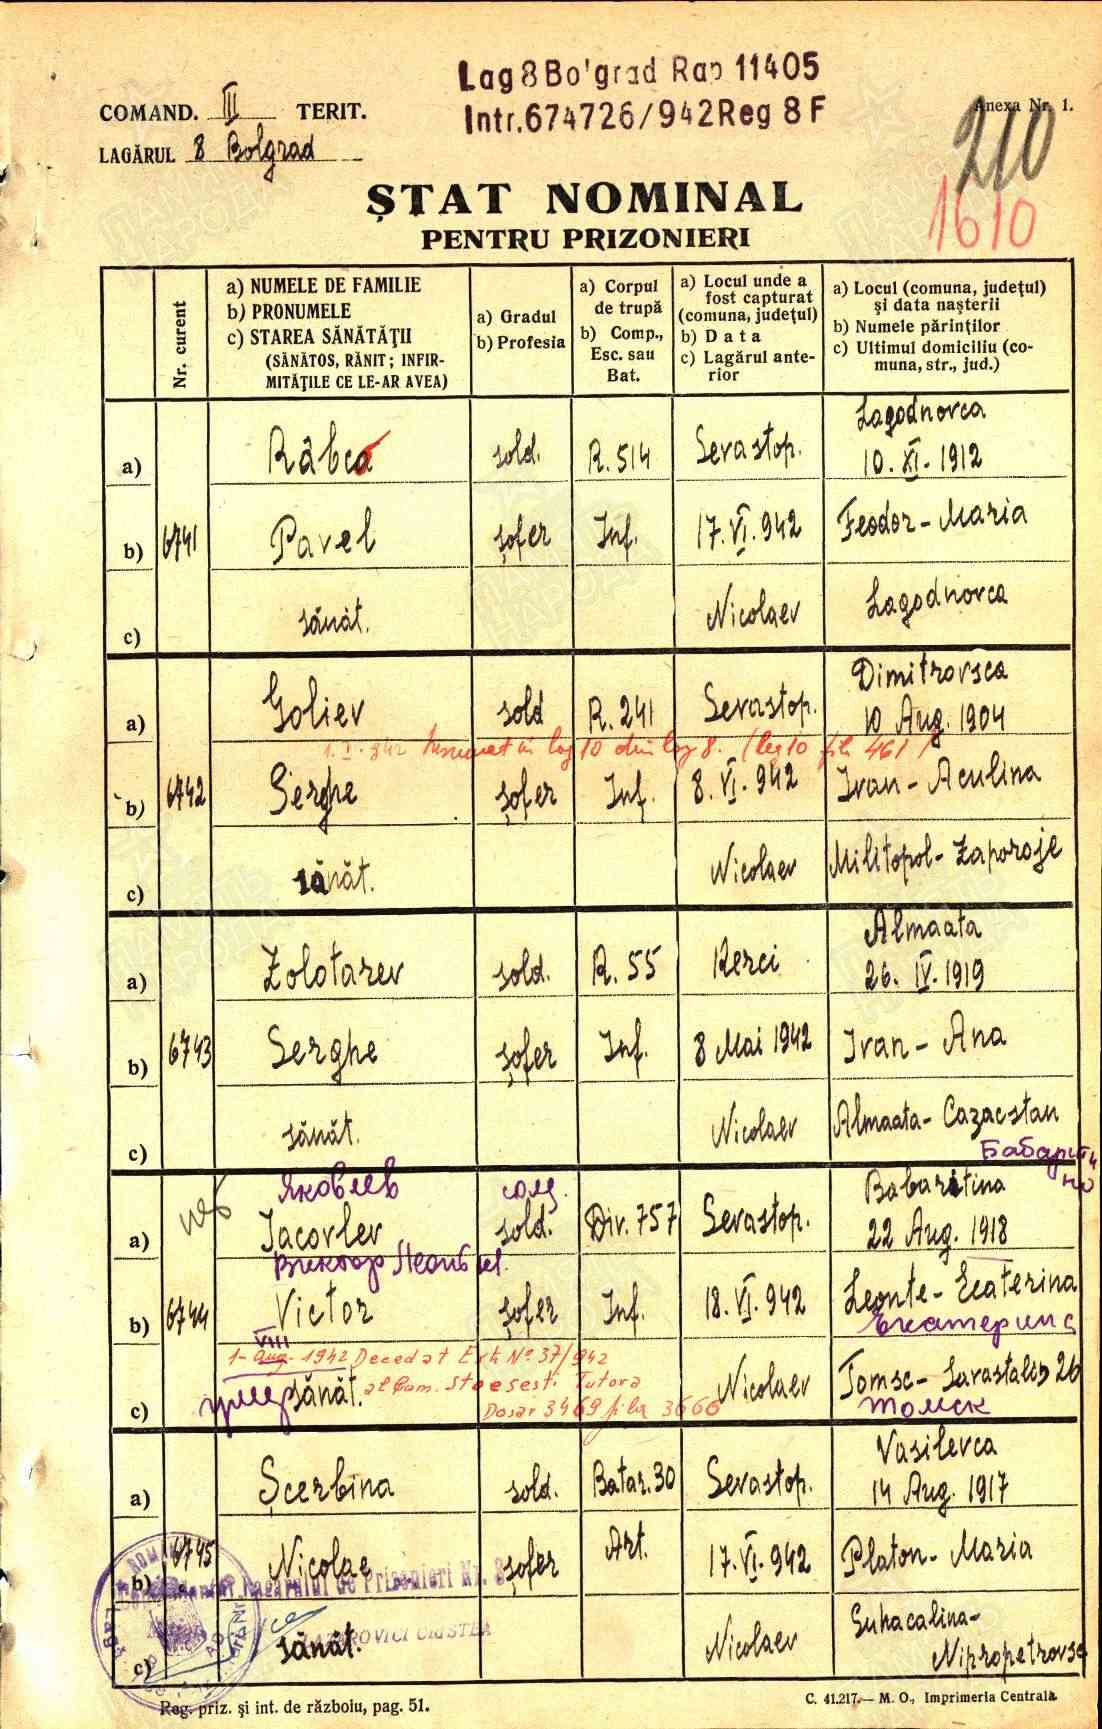 Lag 8 Bolgrad Rap 11405
Intr. 674726/942 Reg 8 F
COMAND. III TERIT.
Anexa Nr. 1.
LAGĂRUL 8 Bolgrad
210
1610
ȘTAT NOMINAL
PENTRU PRIZONIERI
Nr. curent
a) NUMELE DE FAMILIE
b) PRONUMELE
c) STAREA SĂNĂTĂȚII
(SĂNĂTOS, RĂNIT; INFIR-
MITĂȚILE CE LE-AR AVEA)
a) Gradul
b) Profesia
a) Corpul
de trupă
b) Comp.,
Esc. sau
Bat.
a) Locul unde a
fost capturat
(comuna, județul)
b) Data
c) Lagărul ante-
rior
a) Locul (comuna, județul)
și data nașterii
b) Numele părinților
c) Ultimul domiciliu (co-
muna, str., jud.)
Lagodnovca
a) Râbca sold. R. 514 Sevastop. 10. XI. 1912
b) 6741 Pavel șofer Inf. 17. VI. 942 Feodor - Maria
c) sănăt. Nicolaev Lagodnovca
Dimitrovsca
a) Goliev sold R. 241 Sevastop. 10 Aug. 1904
1. I. 942 in lag 10 din lag 8. (lag 10 fila 461)
b) 6742 Serghe șofer Inf. 8. VI. 942 Ivan - Aculina
c) sănăt. Nicolaev Militopol - Zaporoje
Almaata
a) Zolotarev sold. R. 55 Kerci 26. IV. 1919
b) 6743 Serghe șofer Inf. 8 Mai 1942 Ivan - Ana
c) sănăt. Nicolaev Almaata - Cazacstan
Бабаритино
Яковлев сол. Babaritina
a) Iacovlev sold. Div. 757 Sevastop. 22 Aug. 1918
Виктор
b) 6744 Victor șofer Inf. 18. VI. 942 Leonte - Ecaterina
Екатерина
VIII
1- Aug. 1942 Decedat Ext No 37/942
c) умер sănăt. Nicolaev Tomsc - 26
al Com. Stoesesti Tutora
Томск
Dosar 3469 fila 3666
Vasilevca
a) Șcerbina sold. Batar. 30 Sevastop. 14 Aug. 1917
b) 6745 Nicolae șofer Art. 17. VI. 942 Platon - Maria
Comandantul Lagărului de Prizonieri Nr. 8
LAZAROVICI CRISTEA
c) sănăt. Nicolaev Suhacalina -
Nipropetrovsc
Reg. priz. și int. de războiu, pag. 51.
C. 41.217. — M. O., Imprimeria Centrală.